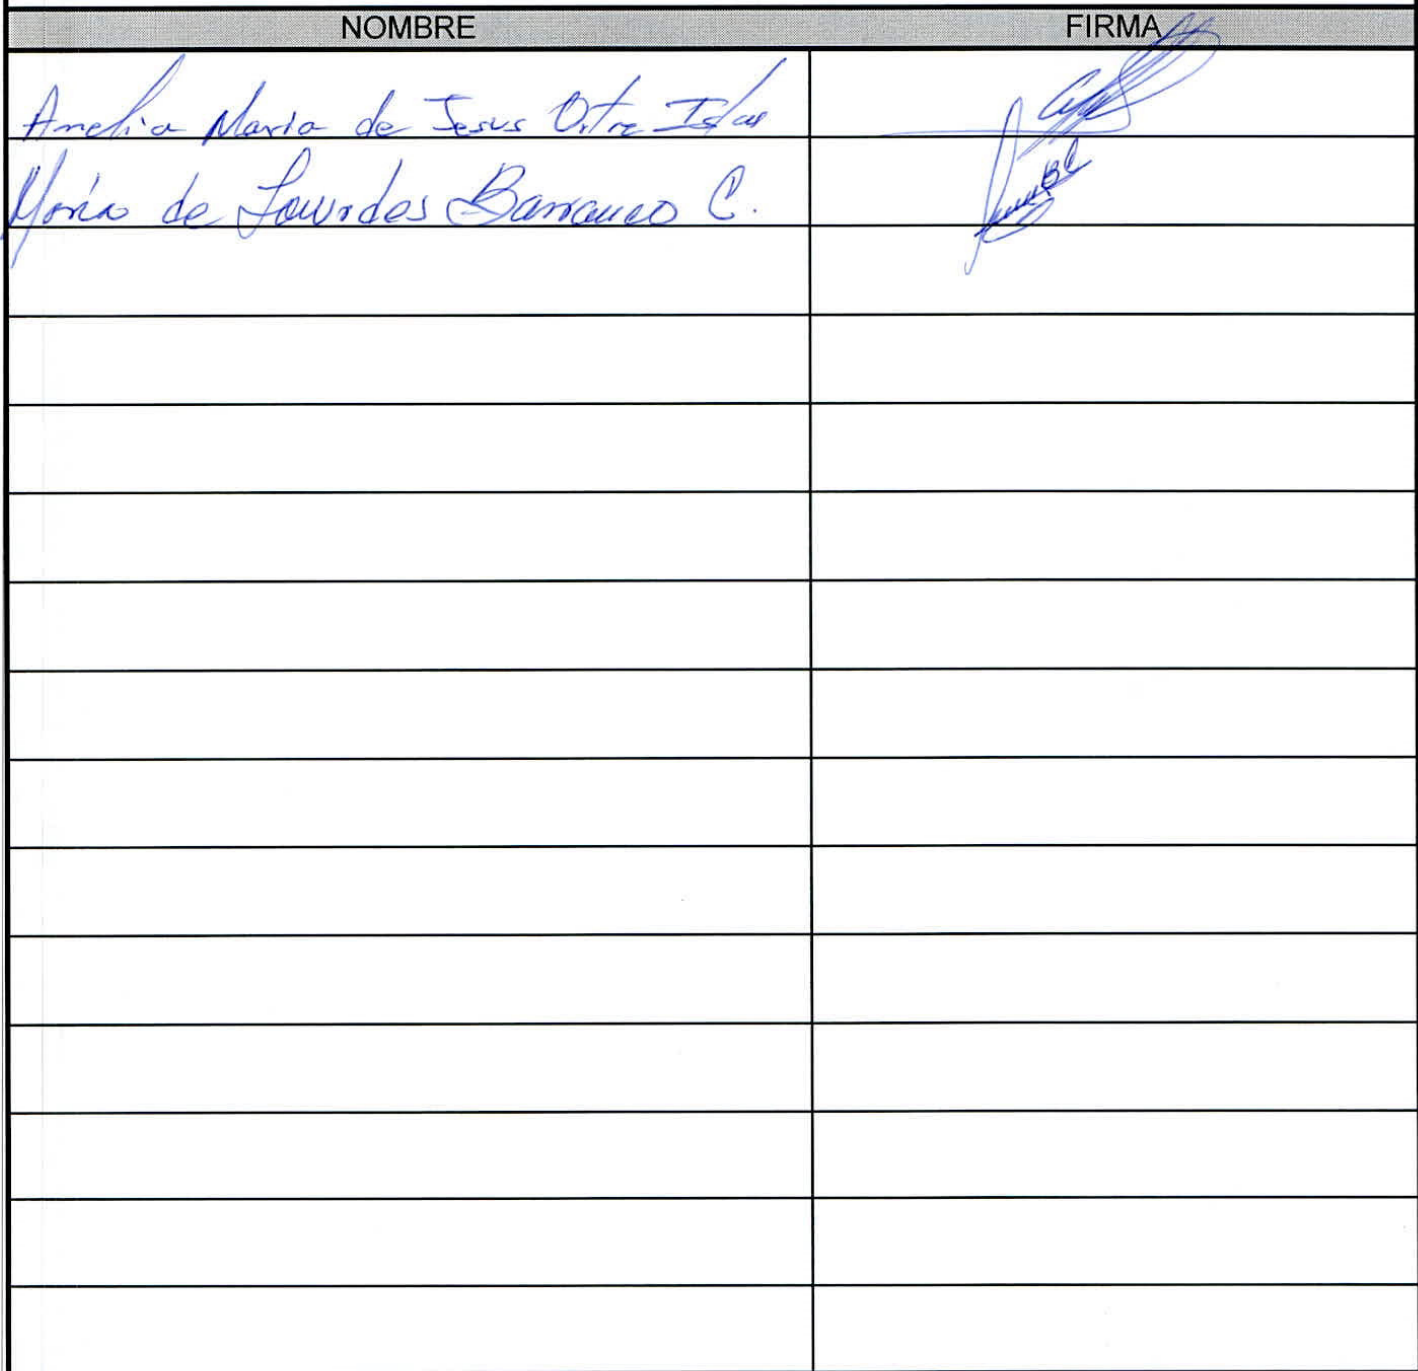 NOMBRE FIRMA
Amelia Maria de Jesus Islas
María de Lourdes Barranco C.